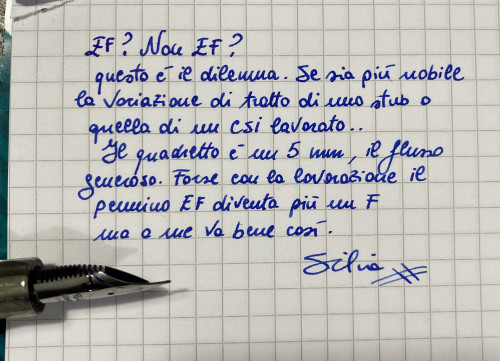 EF? Non EF?
questo è il dilemma. Se sia più nobile
la variazione di tratto di uno stub o
quella di un CSI lavorato..
Il quadretto è un 5 mm, il flusso
generoso. Forse con la lavorazione il
pennino EF diventa più un F
ma a me va bene così.
Silvia